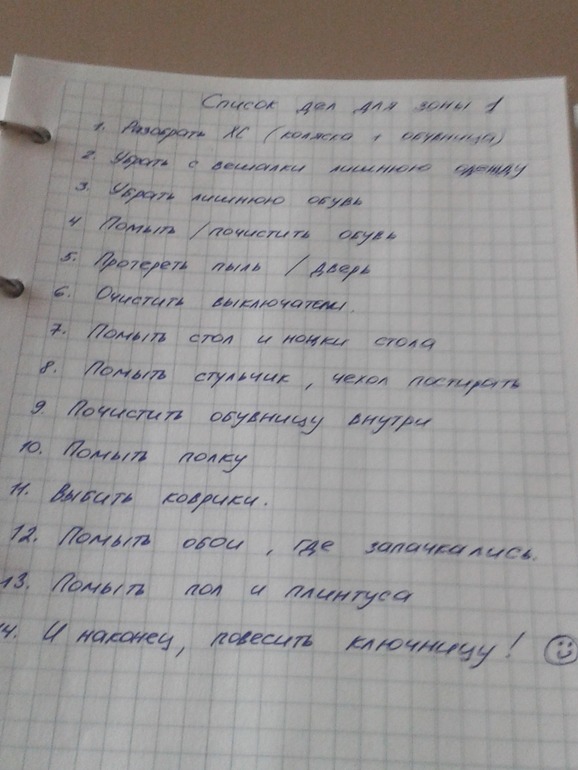 Список дел для зоны 1
1. Разобрать ХС (коляска, обувница)
2. Убрать с вешалки лишнюю одежду
3. Убрать лишнюю обувь
4 Помыть / почистить обувь
5. Протереть пыль / дверь
6. Очистить выключатели.
7. Помыть стол и ножки стола
8. Помыть стульчик, чехол постирать
9. Почистить обувницу внутри
10. Помыть полку
11. Выбить коврики.
12. Помыть обои, где запачкались.
13. Помыть пол и плинтуса
14. И наконец, повесить ключницу!